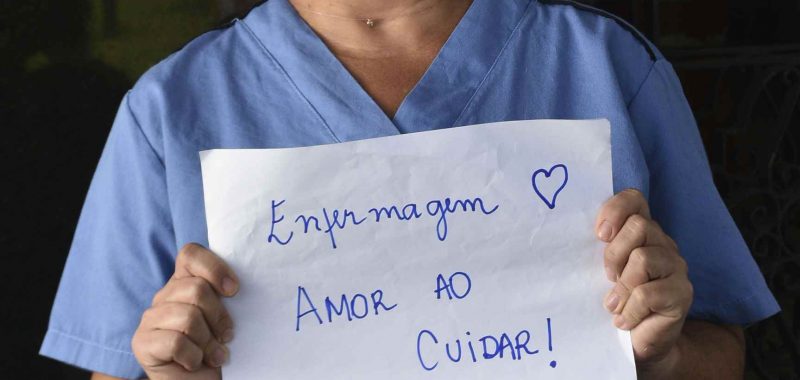 Enfermagem ♡
AMOR AO
CUIDAR!